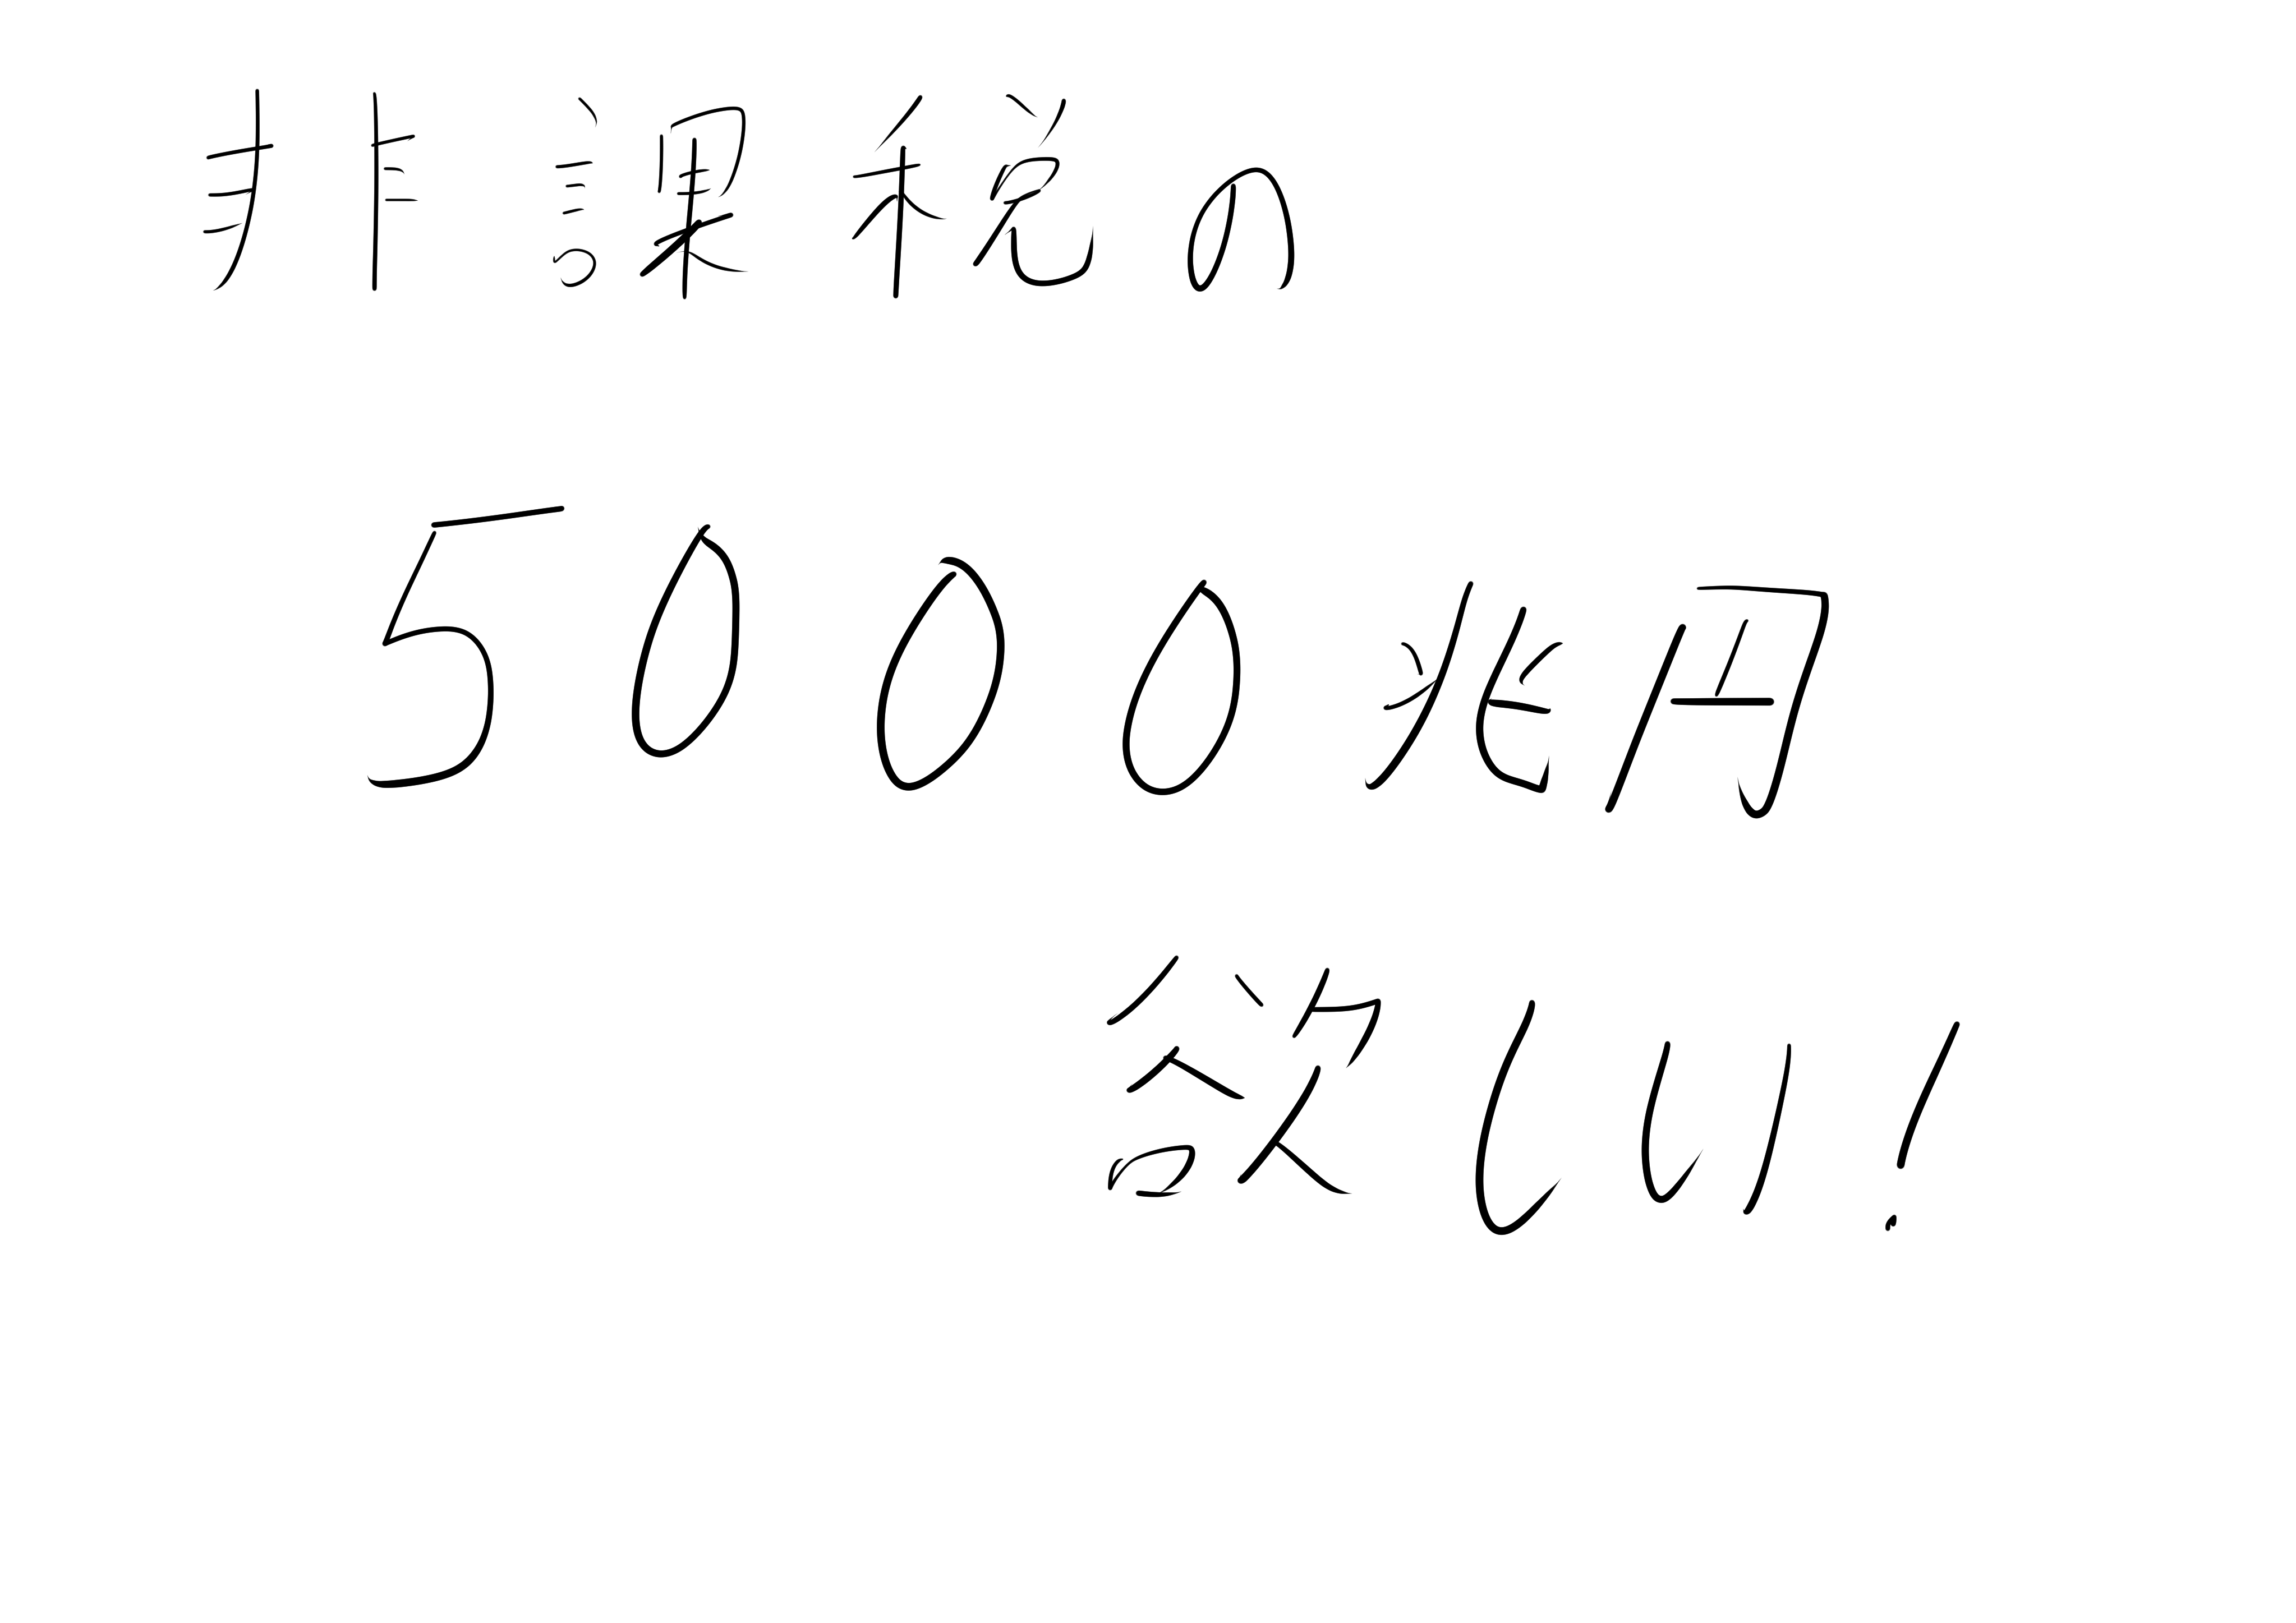 非課税の
5000兆円
欲しい!